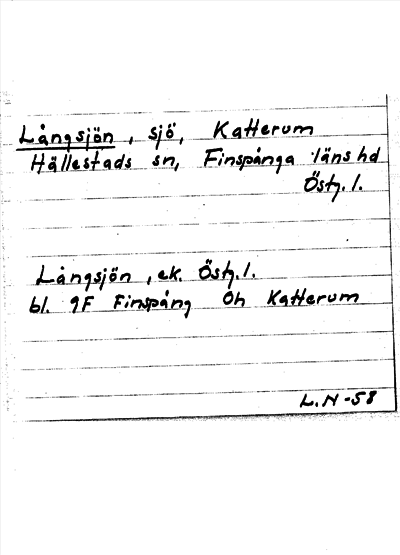 Långsjön, sjö, Katterum
Hällestads sn, Finspånga läns hd
Östg. l.
Långsjön, ek. Östg. l.
bl. 9F Finspång Oh Katterum
L.N-58